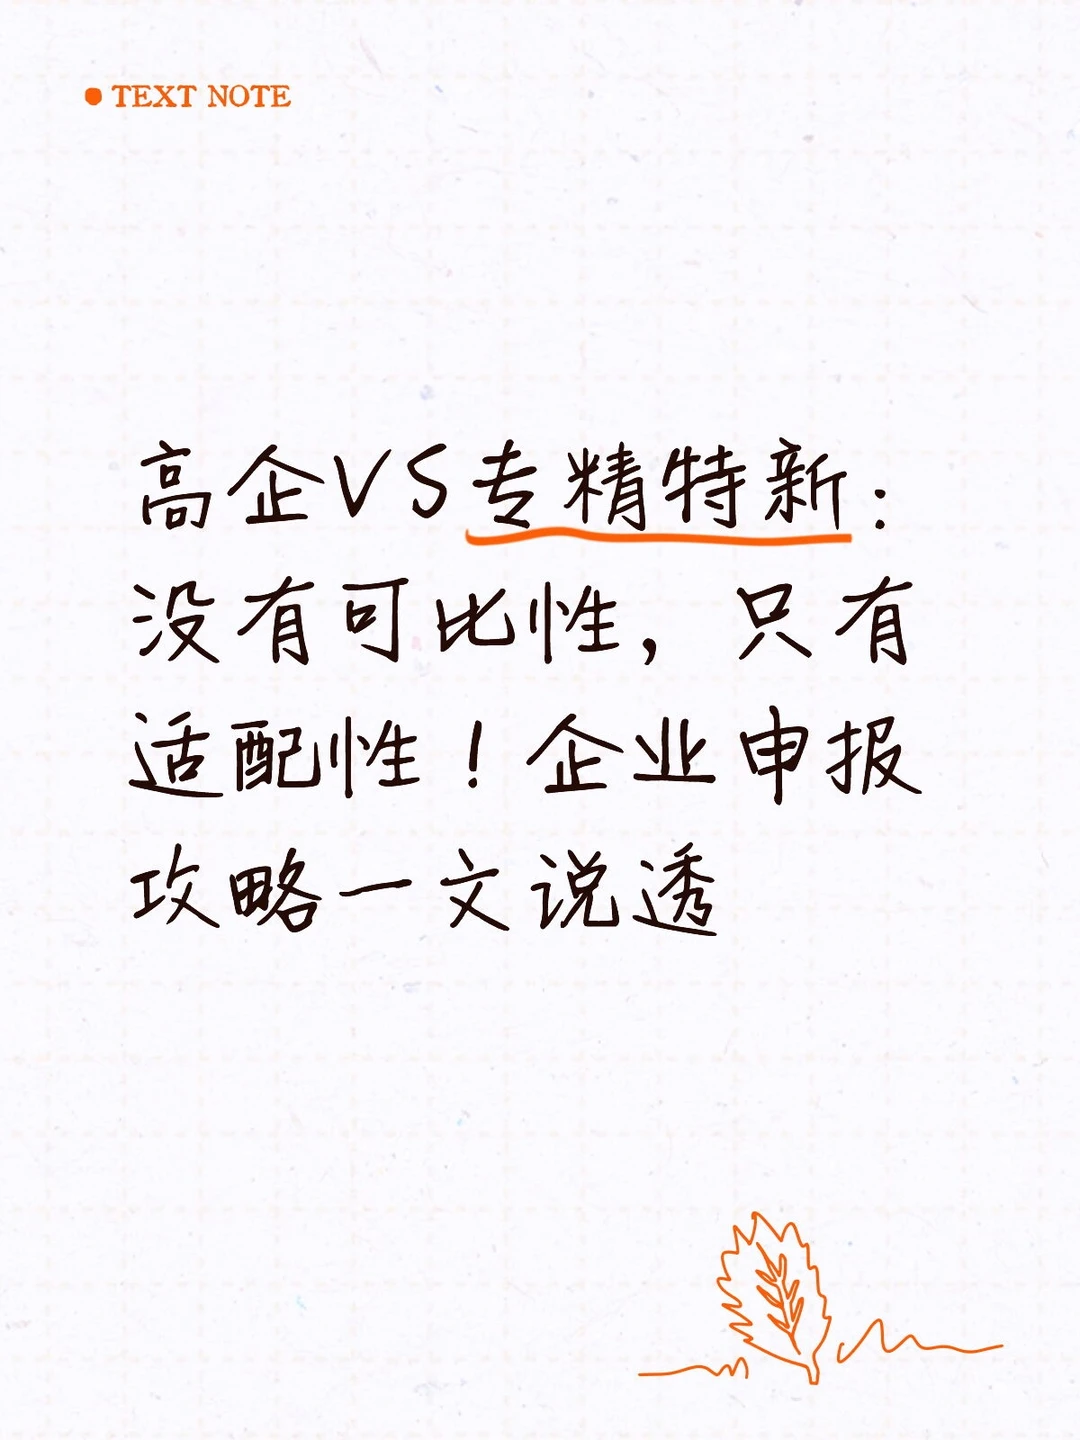 TEXT NOTE
高企VS专精特新：
没有可比性，只有
适配性！企业申报
攻略一文说透